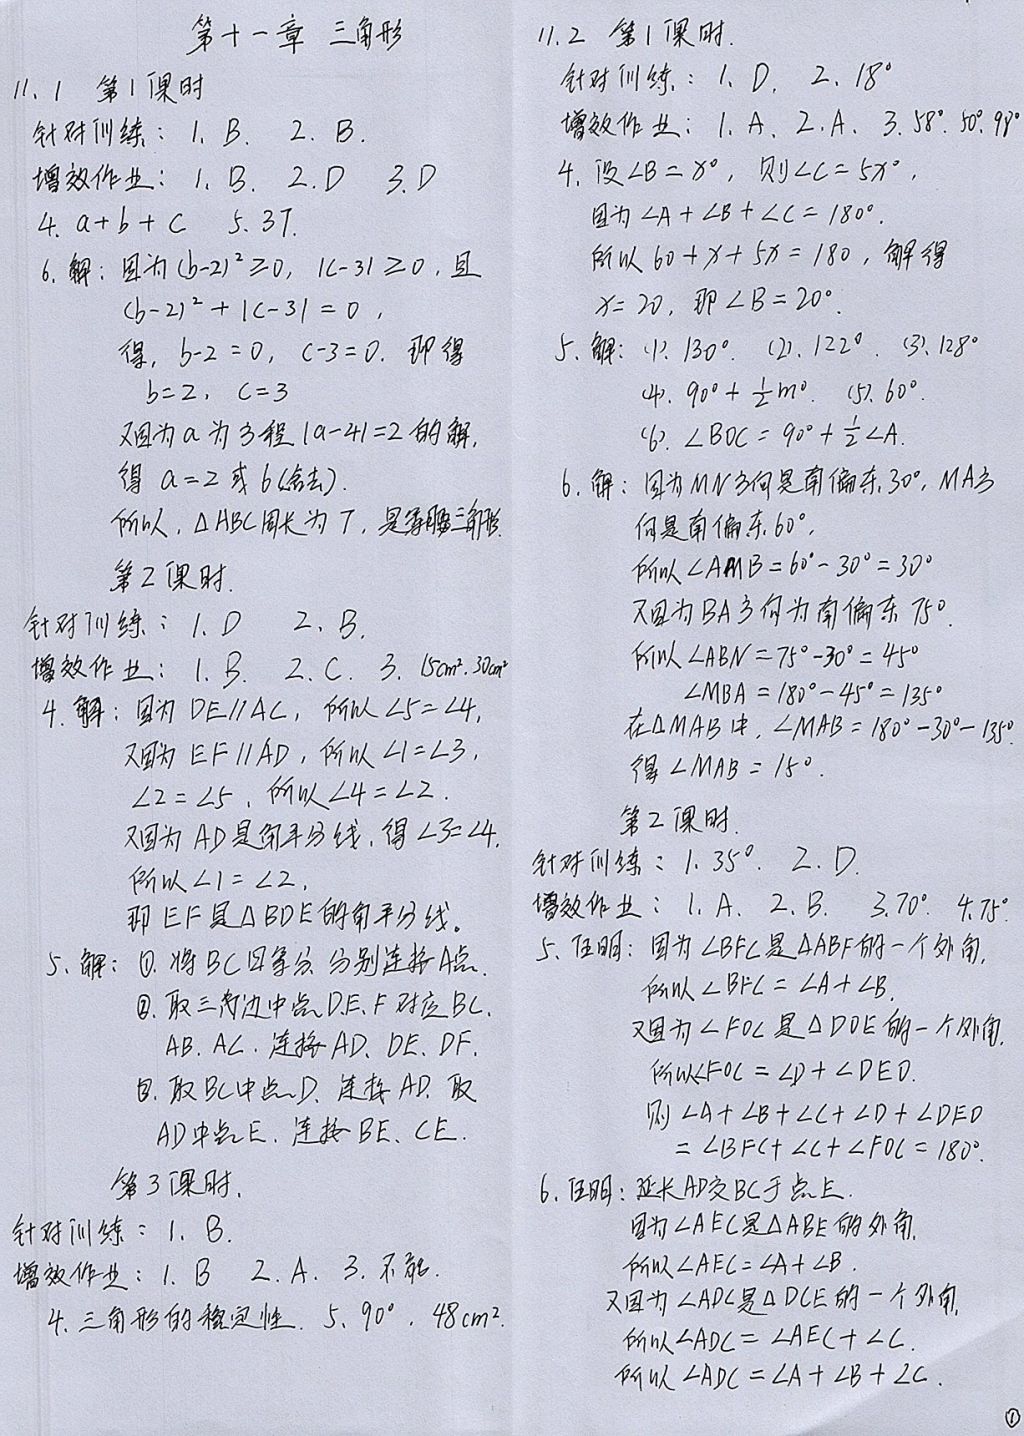 第十一章 三角形
11.1 第1课时
针对训练：1. B. 2. B.
增效作业：1. B. 2. D 3. D
4. a+b+c 5. 37.
6. 解：因为(b-2)²≥0, |c-3|≥0, 且
(b-2)²+|c-3|=0,
得, b-2=0, c-3=0. 即得
b=2, c=3
又因为a为方程|a-4|=2的解,
得 a=2或6(舍去).
所以, △ABC周长为7, 是等腰三角形.
第2课时.
针对训练：1. D 2. B.
增效作业：1. B. 2. C. 3. 15cm². 30cm²
4. 解：因为DE∥AC, 所以∠5=∠4,
又因为EF∥AD, 所以∠1=∠3,
∠2=∠5, 所以∠4=∠2.
又因为AD是角平分线, 得∠3=∠4,
所以∠1=∠2,
即EF是△BDE的角平分线。
5. 解：①. 将BC四等分, 分别连接A点.
②. 取三角边中点D.E.F对应BC.
AB. AC. 连接AD. DE. DF.
③. 取BC中点D. 连接AD. 取
AD中点E. 连接BE. CE.
第3课时.
针对训练：1. B.
增效作业：1. B 2. A. 3. 不能.
4. 三角形的稳定性. 5. 90°. 48cm².
11.2 第1课时.
针对训练：1. D. 2. 18°
增效作业：1. A. 2. A. 3. 58°. 50°. 98°
4. 设∠B=x°, 则∠C=5x°,
因为∠A+∠B+∠C=180°.
所以60+x+5x=180, 解得
x=20, 即∠B=20°.
5. 解：(1). 130°. (2). 122°. (3). 128°
(4). 90°+½m°. (5). 60°.
(6). ∠BOC=90°+½∠A.
6. 解：因为MN方向是南偏东30°, MA方
向是南偏东60°,
所以∠AMB=60°-30°=30°
又因为BA方向为南偏东75°.
所以∠ABN=75°-30°=45°
∠MBA=180°-45°=135°
在△MAB中, ∠MAB=180°-30°-135°.
得∠MAB=15°.
第2课时.
针对训练：1. 35°. 2. D.
增效作业：1. A. 2. B. 3. 70°. 4. 75°.
5. 证明：因为∠BFC是△ABF的一个外角,
所以∠BFC=∠A+∠B.
又因为∠FOC是△DOE的一个外角,
所以∠FOC=∠D+∠DEO.
则∠A+∠B+∠C+∠D+∠DEO
=∠BFC+∠C+∠FOC=180°.
6. 证明：延长AD交BC于点E.
因为∠AEC是△ABE的外角.
所以∠AEC=∠A+∠B.
又因为∠ADC是△DCE的一个外角,
所以∠ADC=∠AEC+∠C.
所以∠ADC=∠A+∠B+∠C.
①